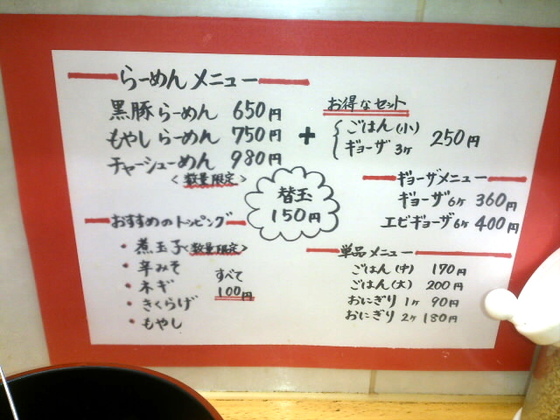 らーめんメニュー
黒豚らーめん 650円
もやしらーめん 750円
チャーシューめん 980円
<数量限定>
+
お得なセット
ごはん(小)
ギョーザ3ヶ
250円
替玉
150円
ギョーザメニュー
ギョーザ6ヶ 360円
エビギョーザ6ヶ 400円
おすすめのトッピング
・煮玉子<数量限定>
・辛みそ
・ネギ
・きくらげ
・もやし
すべて
100円
単品メニュー
ごはん(中) 170円
ごはん(大) 200円
おにぎり1ヶ 90円
おにぎり2ヶ 180円